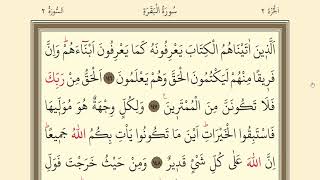 الجزء ٢ سُورَةُ الْبَقَرَةِ السورة ٢
اَلَّذٖينَ اٰتَيْنَاهُمُ الْكِتَابَ يَعْرِفُونَهُ كَمَا يَعْرِفُونَ اَبْنَٓاءَهُمْ وَاِنَّ
فَرٖيقًا مِنْهُمْ لَيَكْتُمُونَ الْحَقَّ وَهُمْ يَعْلَمُونَ ١٤٦ اَلْحَقُّ مِنْ رَبِّكَ
فَلَا تَكُونَنَّ مِنَ الْمُمْتَرٖينَ ١٤٧ وَلِكُلٍّ وِجْهَةٌ هُوَ مُوَلّٖيهَا
فَاسْتَبِقُوا الْخَيْرَاتِ اَيْنَ مَا تَكُونُوا يَأْتِ بِكُمُ اللّٰهُ جَمٖيعًا
اِنَّ اللّٰهَ عَلٰى كُلِّ شَيْءٍ قَدٖيرٌ ١٤٨ وَمِنْ حَيْثُ خَرَجْتَ فَوَلِّ